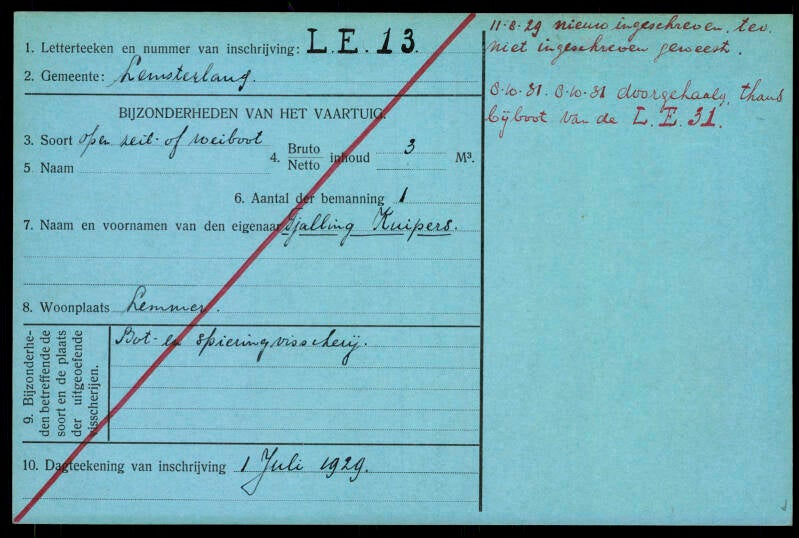 1. Letterteeken en nummer van inschrijving: L.E.13.
2. Gemeente: Lemsterland.
BIJZONDERHEDEN VAN HET VAARTUIG.
3. Soort open zeil- of roeiboot
4. Bruto Netto inhoud 3 M³.
5 Naam
6. Aantal der bemanning 1
7. Naam en voornamen van den eigenaar Tjalling Kuipers.
8. Woonplaats Lemmer.
9. Bijzonderhe-
den betreffende de
soort en de plaats
der uitgeoefende
visscherijen.
Bot- en spieringvisscherij.
10. Dagteekening van inschrijving 1 Juli 1929.
11-8-29 nieuw ingeschreven, tev.
niet ingeschreven geweest.
8-10-31. 8-10-31 doorgehaald, thans
bijboot van de L.E.31.